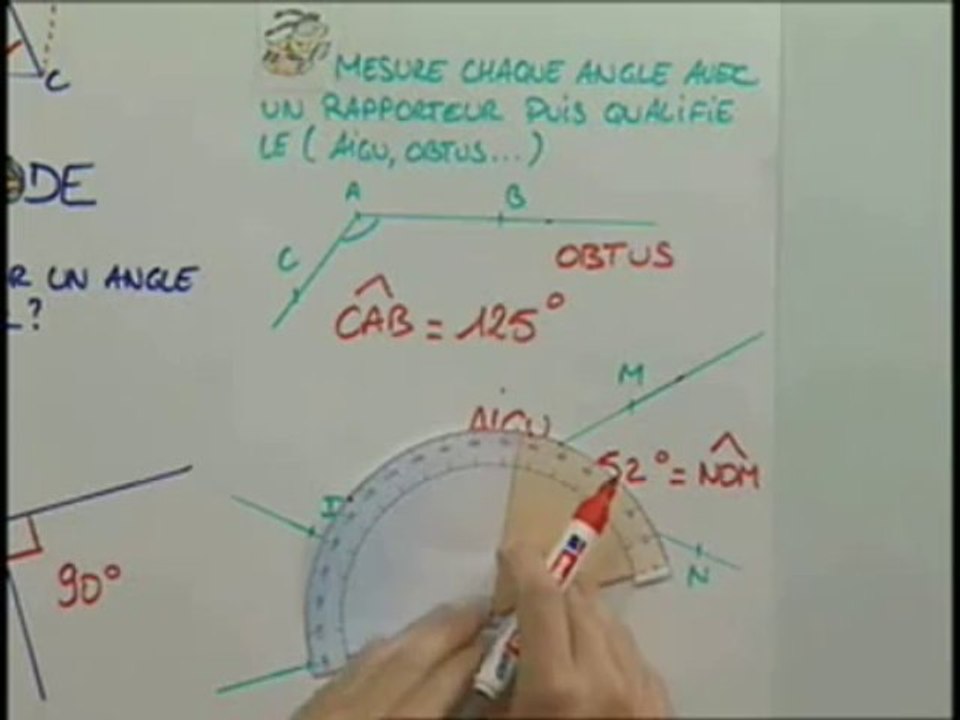 C
MESURE CHAQUE ANGLE AVEC
UN RAPPORTEUR PUIS QUALIFIE
LE (AIGU, OBTUS...)
DE
A
B
C
OBTUS
R UN ANGLE
?
CAB = 125°
M
AIGU
52° = NOM
D
N
90°